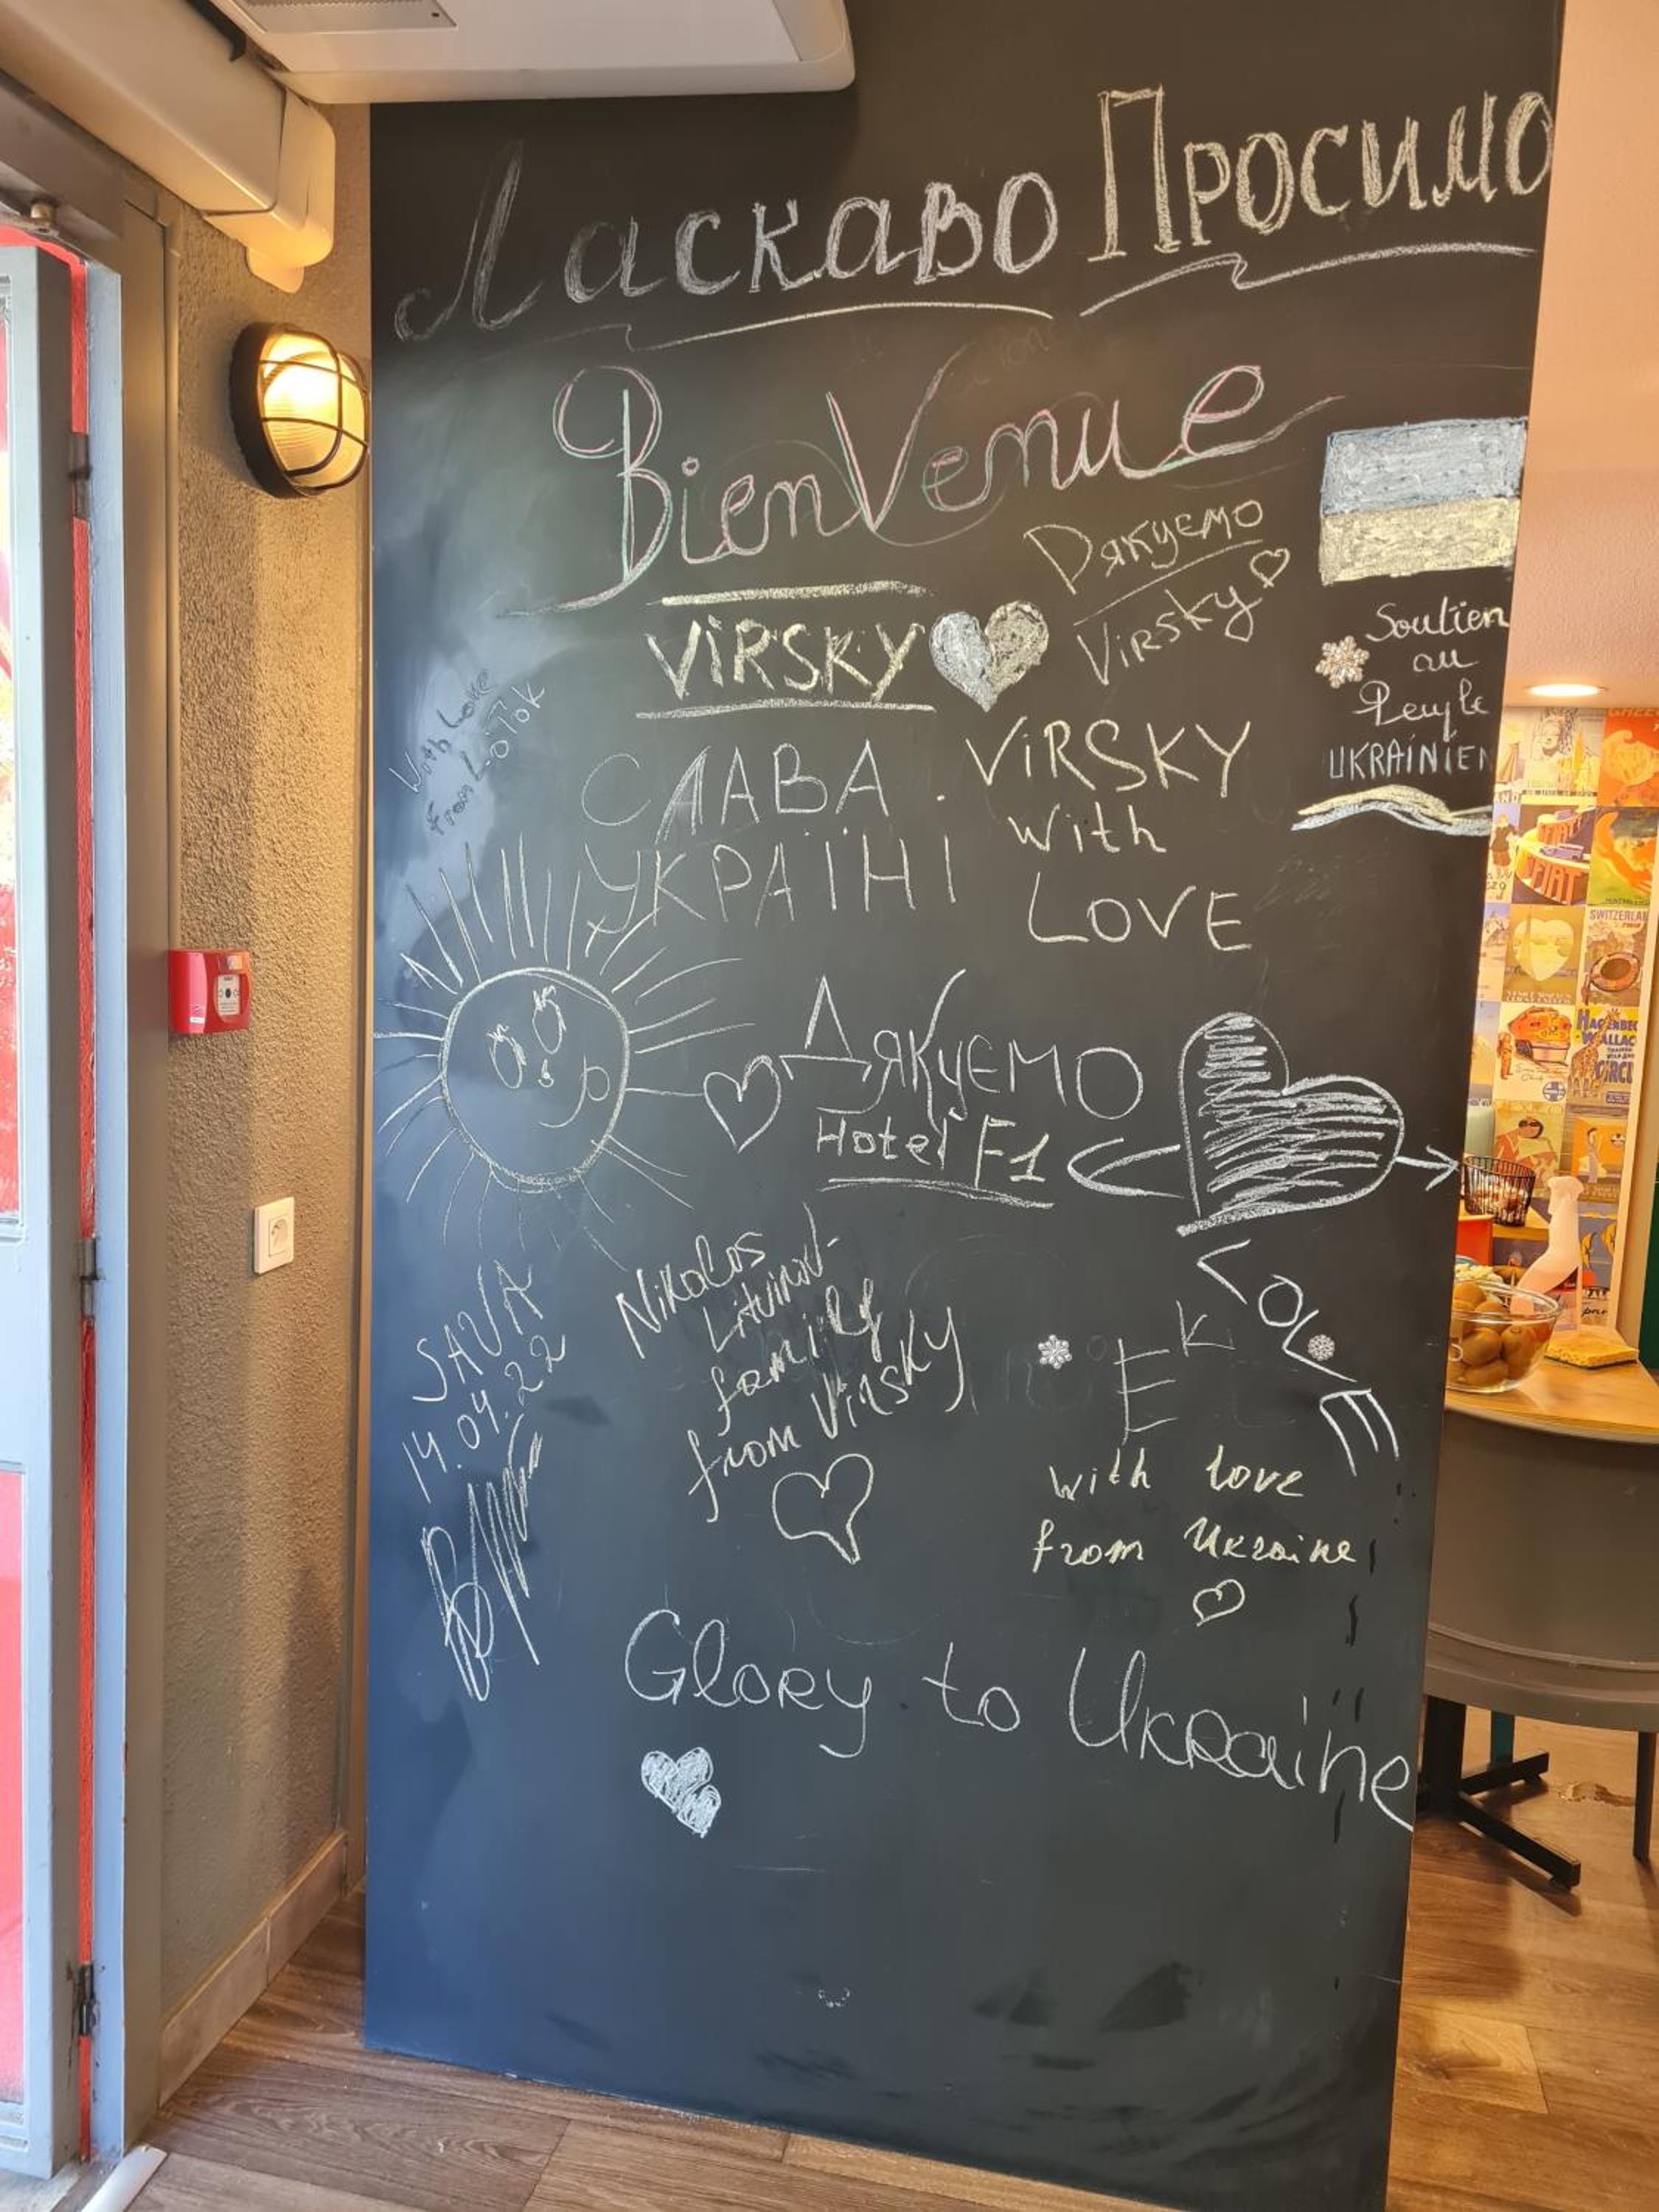 Ласкаво Просимо
BienVenue
Дякуємо
Virsky
ViRSKY
Soutien
au
Peuple
UKRAINIEN
With Love
from LOTOK
СЛАВА
УКРАЇНІ
ViRSKY
With
LOVE
Дякуємо
Hotel F1
LOVE
SAVA
14.04.22
Nikolos
Litvinov
family
from Virsky
EK
with love
from Ukraine
Glory to Ukraine
SWITZERLAND
HAGENBECK
WALLACE
CIRCUS